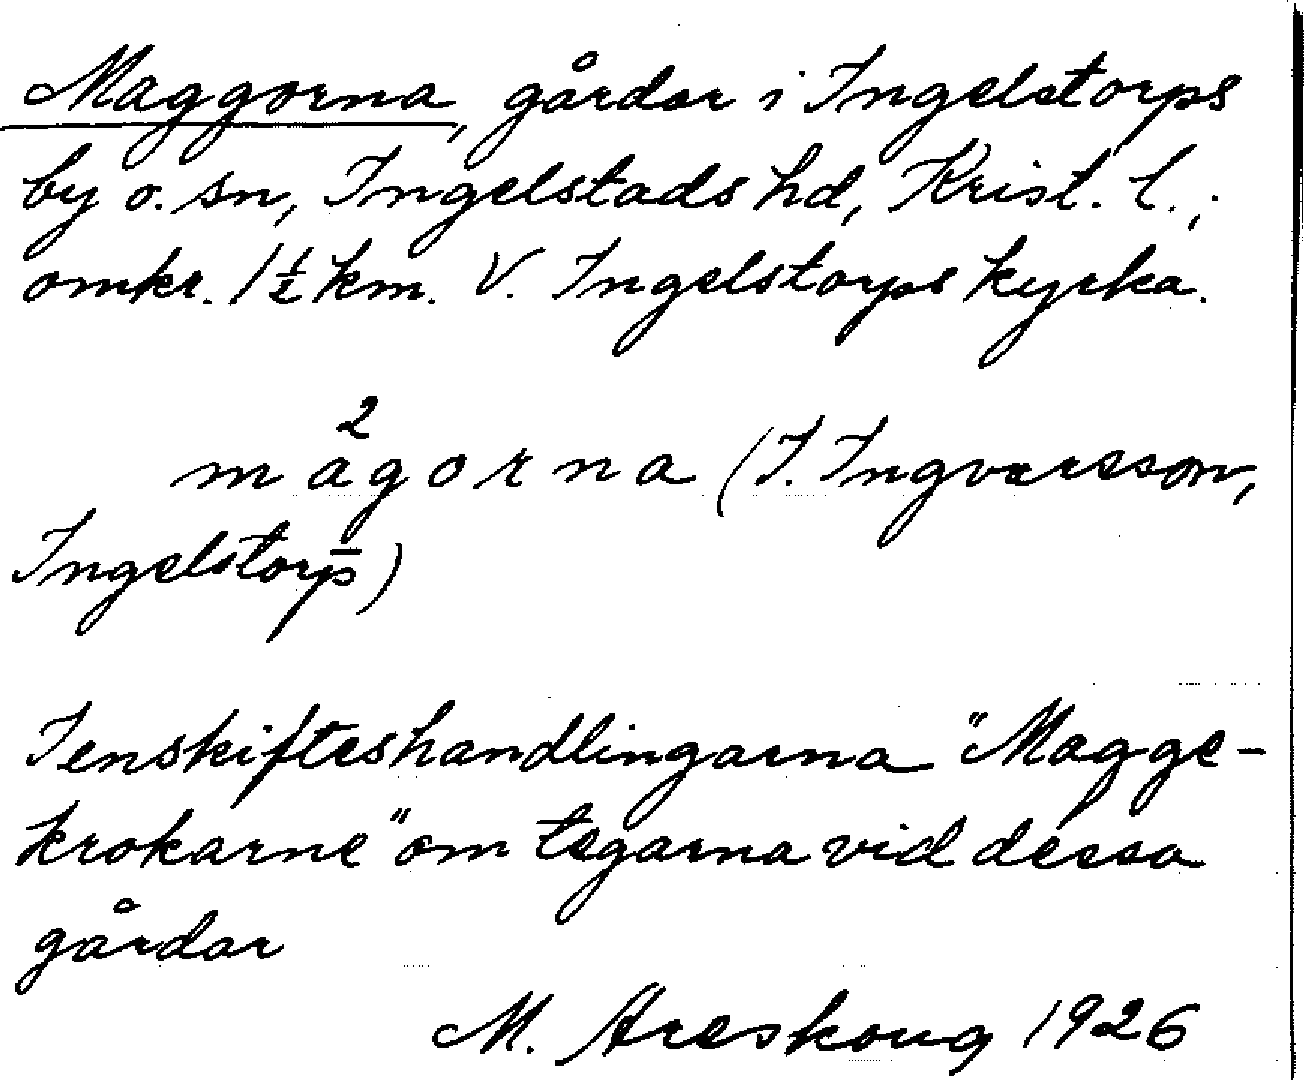 Maggorna, gårdar i Ingelstorps
by o. sn, Ingelstads hd, Krist. l.,
omkr. 1½ km. V. Ingelstorps kyrka.
2
magorna (I. Ingvarsson,
Ingelstorp̄)
I enskifteshandlingarna "Magge-
krokarne" om tegarna vid dessa
gårdar
M. Areskoug 1926